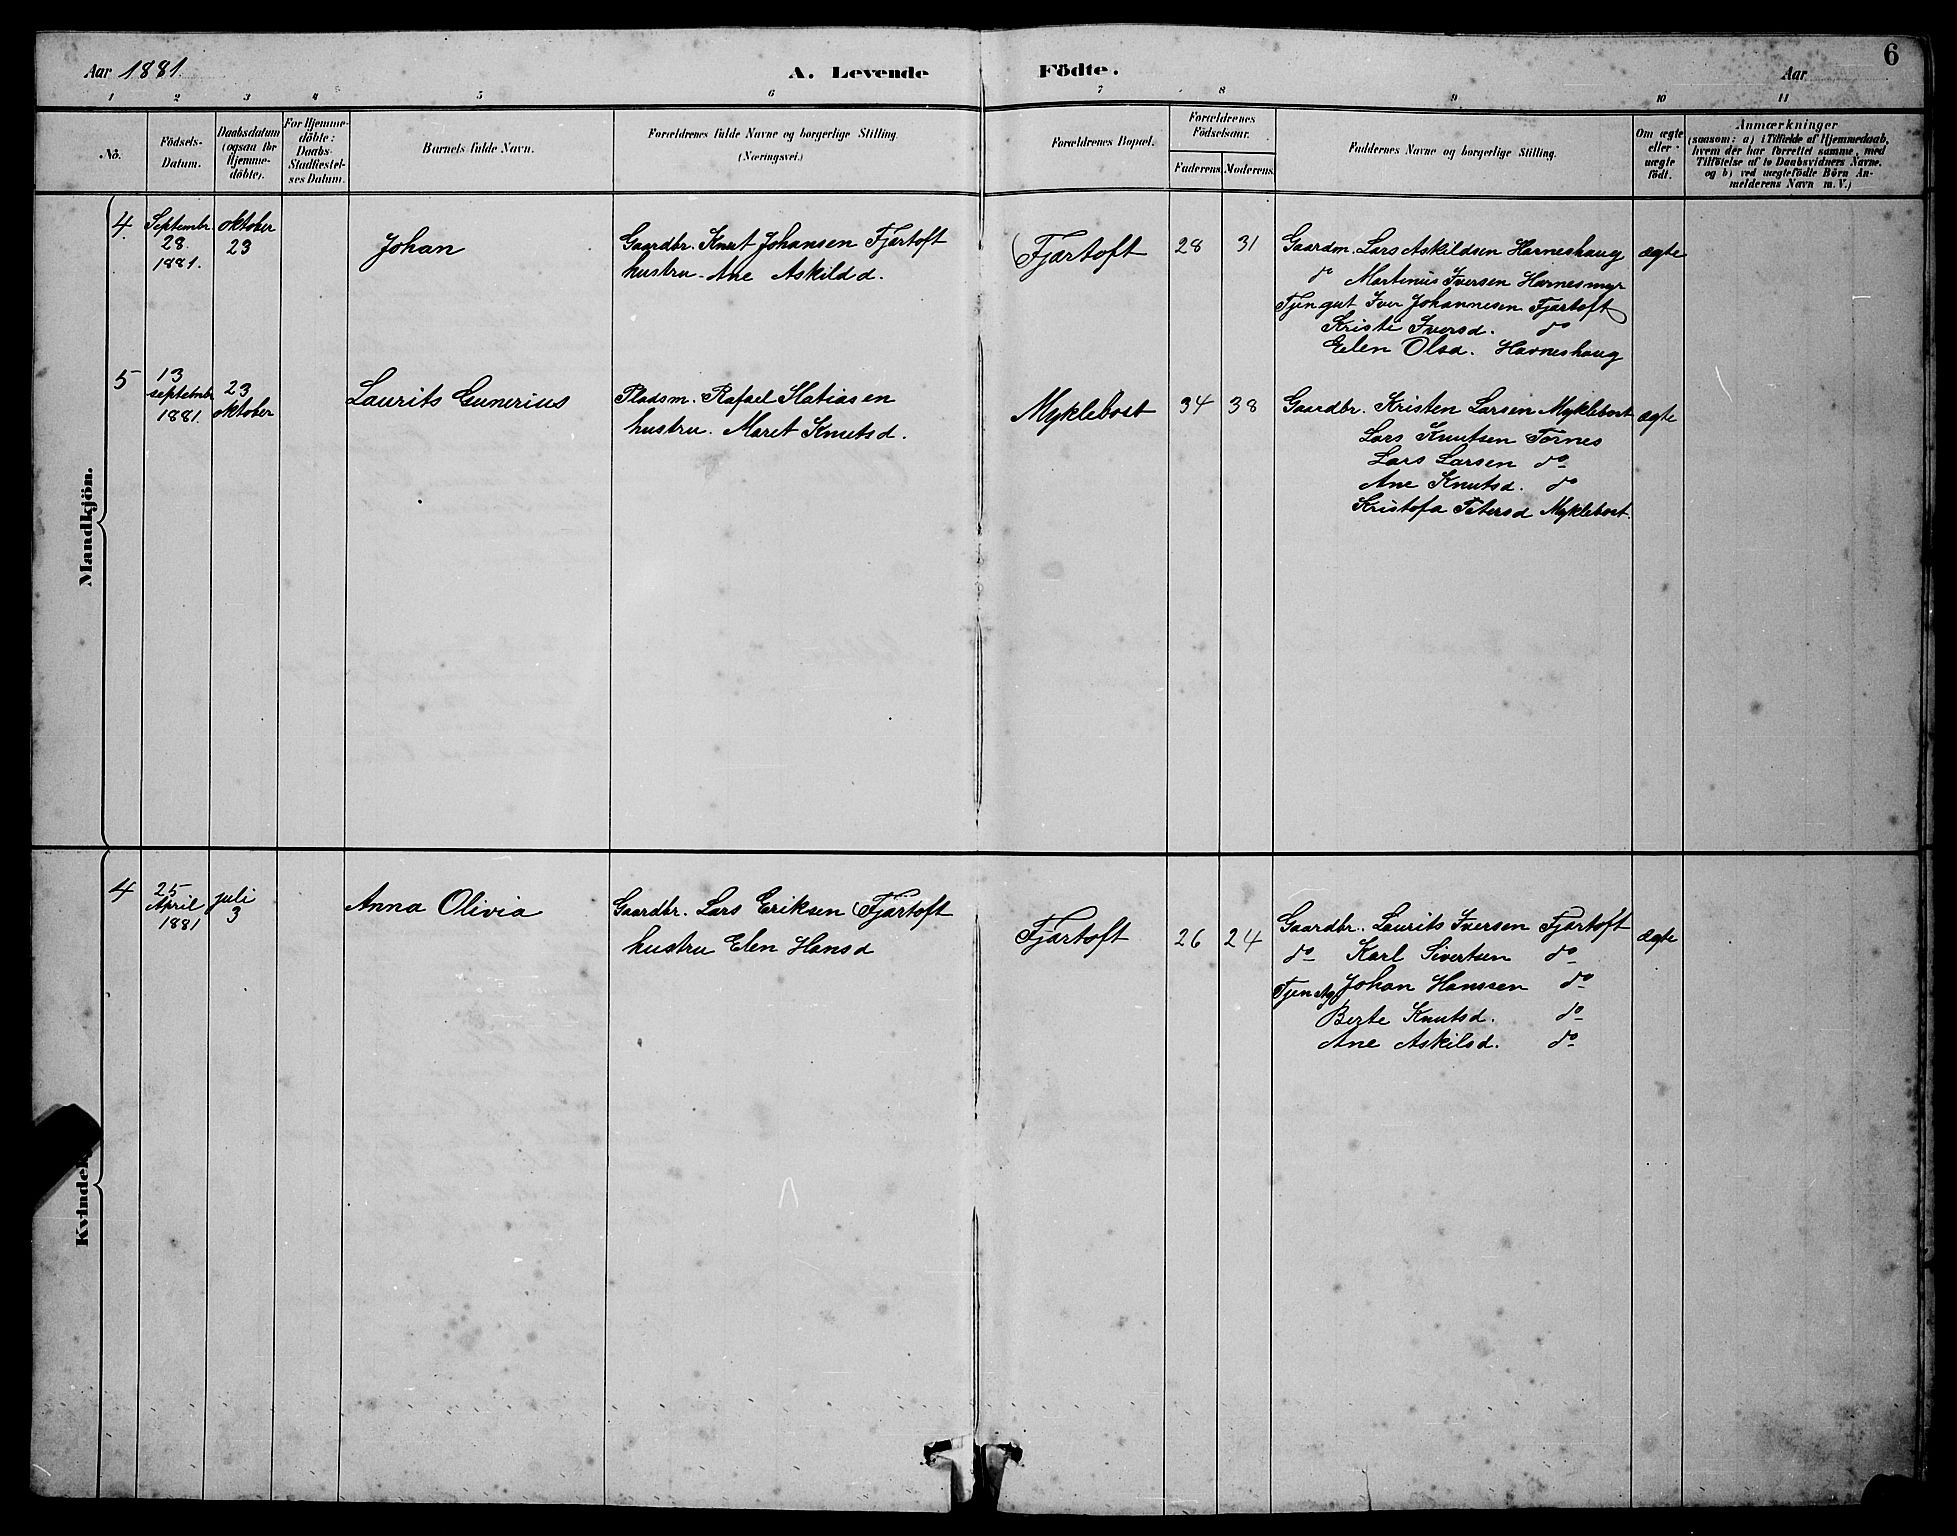 6
Aar 1881.
A. Levende Födte.
Aar
1 2 3 4 5 6 7 8 9 10 11
No.
Födsels-Datum.
Daabsdatum (ogsaa for Hjemme-döbte).
For Hjemme-döbte: Daabs-Stadfæstel-ses Datum.
Barnets fulde Navn.
Forældrenes fulde Navne og borgerlige Stilling.
(Næringsvei.)
Forældrenes Bopæl.
Forældrenes Födselsaar.
Faderens. Moderens.
Faddernes Navne og borgerlige Stilling.
Om ægte eller uægte födt.
Anmærkninger
(saasom: a) i Tilfælde af Hjemmedaab,
hvem der har forrettet samme, med
Tilföielse af to Daabsvidners Navne.
og b) ved uægtefödte Börn An-
melderens Navn m. V.)
Mandkjön.
4. Septembr. 28. 1881.
oktober 23
Johan
Gaardbr. Knut Johansen Fjærtoft
hustru. Ane Askildd.
Fjærtoft
28 31
Gaardm. Lars Askildsen Harneshaug
do Martinus Iversen Harnesmyr
Tjen gut Iver Johannesen Fjærtoft
Kristi Iversd. do
Elen Olsd. Harneshaug
ægte
5 13 septembr 1881.
23 oktober
Laurits Gunerius
Pladsm. Rafael Matiasen
hustru. Maret Knutsd.
Myklebost
34 38
Gaardbr. Kristen Larsen Myklebost
Lars Knutsen Tornes
Lars Larsen do
Ane Knutsd. do
Kristofa Petersd Myklebost.
ægte
Kvindek
4 25 April 1881
juli 3
Anna Olivia
Gaardbr. Lars Eriksen Fjærtoft
hustru Elen Hansd
Fjærtoft
26 24
Gaardbr. Laurits Iversen Fjærtoft
do Karl Sivertsen do
Johan Hanssen do
Berte Knutsd. do
Ane Askilsd. do
ægte